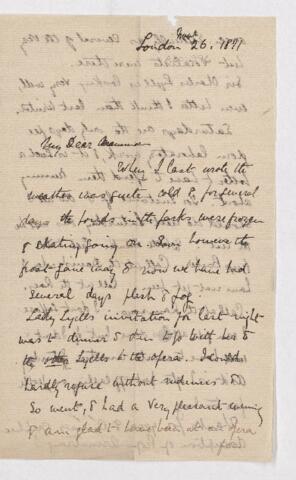 London Novr 26, 1871
My Dear Mamma
When I last wrote the
weather was quite cold & for several
days the ponds in the parks were frozen
& skating going on. Soon however the
frost gave way & now we have had
several days slush & fog.
Lady Lyell's invitation for last night
was to dinner & then to go with her &
the Lyells to the opera. I could
hardly refuse without rudeness
So went, & had a very pleasant evening
I am glad to have been at an Opera